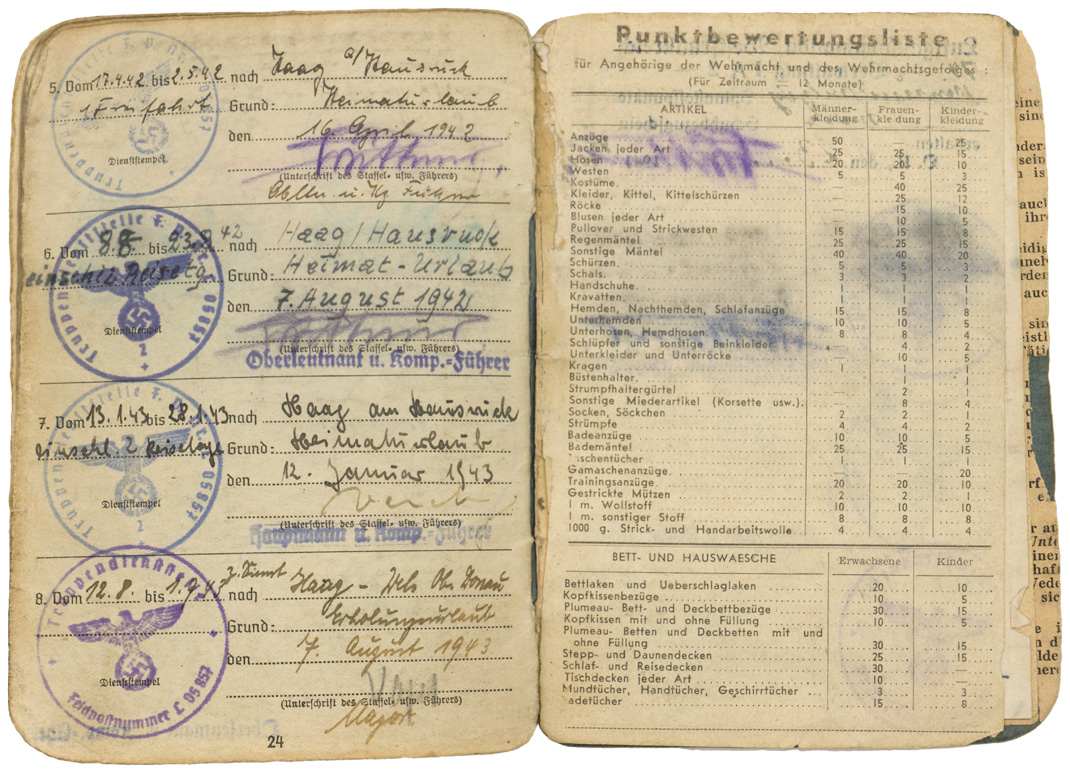 5. Vom 17.4.42 bis 2.5.42 nach Haag a/Hausruck
1 Freifahrt Grund: Heimaturlaub
Dienststempel
den 16. April 1942
(Unterschrift des Staffel- usw. Führers)
Obltn. u. Führer
6. Vom 8.8. bis 23.8.42 nach Haag/Hausruck
einschl. Reisetg. Grund: Heimat-Urlaub
den 7. August 1942
Dienststempel
(Unterschrift des Staffel- usw. Führers)
Oberleutnant u. Komp.-Führer
7. Vom 13.1.43 bis 28.1.43 nach Haag am Hausruck
einschl. 2 Reisetage Grund: Heimaturlaub
den 12. Januar 1943
Dienststempel
(Unterschrift des Staffel- usw. Führers)
Hauptmann u. Komp.-Führer
8. Vom 12.8. bis 1.9. nach Haag - Wels Ob. Donau
Grund: Erholungsurlaub
den 7. August 1943
Dienststempel
(Unterschrift des Staffel- usw. Führers)
Major
Feldpostnummer L 05857
24
Punktbewertungsliste
für Angehörige der Wehrmacht und des Wehrmachtsgefolges:
(Für Zeitraum 12 Monate)
ARTIKEL Männer-kleidung Frauen-kleidung Kinder-kleidung
Anzüge 50 — 25
Jacken jeder Art 25 25 15
Hosen 20 20 10
Westen 5 5 3
Kostüme — 40 25
Kleider, Kittel, Kittelschürzen — 25 12
Röcke — 15 10
Blusen jeder Art — 10 5
Pullover und Strickwesten 15 15 8
Regenmäntel 25 25 15
Sonstige Mäntel 40 40 20
Schürzen 5 5 3
Schals 3 3 2
Handschuhe 1 1 1
Kravatten 1 1 1
Hemden, Nachthemden, Schlafanzüge 15 15 8
Unterhemden 10 10 5
Unterhosen, Hemdhosen 8 8 4
Schlüpfer und sonstige Beinkleider — 4 2
Unterkleider und Unterröcke — 10 5
Kragen 1 1 1
Büstenhalter — 1 1
Strumpfhaltergürtel — 2 1
Sonstige Miederartikel (Korsette usw.) — 8 4
Socken, Söckchen 2 2 1
Strümpfe 4 4 2
Badeanzüge 10 10 5
Bademäntel 25 25 15
schentücher 1 1 1
Gamaschenanzüge — — 20
Trainingsanzüge 20 20 10
Gestrickte Mützen 2 2 1
1 m. Wollstoff 10 10 10
1 m. sonstiger Stoff 8 8 8
1000 g. Strick- und Handarbeitswolle 4 4 4
BETT- UND HAUSWAESCHE Erwachsene Kinder
Bettlaken und Ueberschlaglaken 20 10
Kopfkissenbezüge 10 5
Plumeau- Bett- und Deckbettbezüge 30 15
Kopfkissen mit und ohne Füllung 10 5
Plumeau- Betten und Deckbetten mit und
ohne Füllung 30 15
Stepp- und Daunendecken 25 15
Schlaf- und Reisedecken 30 —
Tischdecken jeder Art 10 —
Mundtücher, Handtücher, Geschirrtücher 3 3
adetücher 15 8